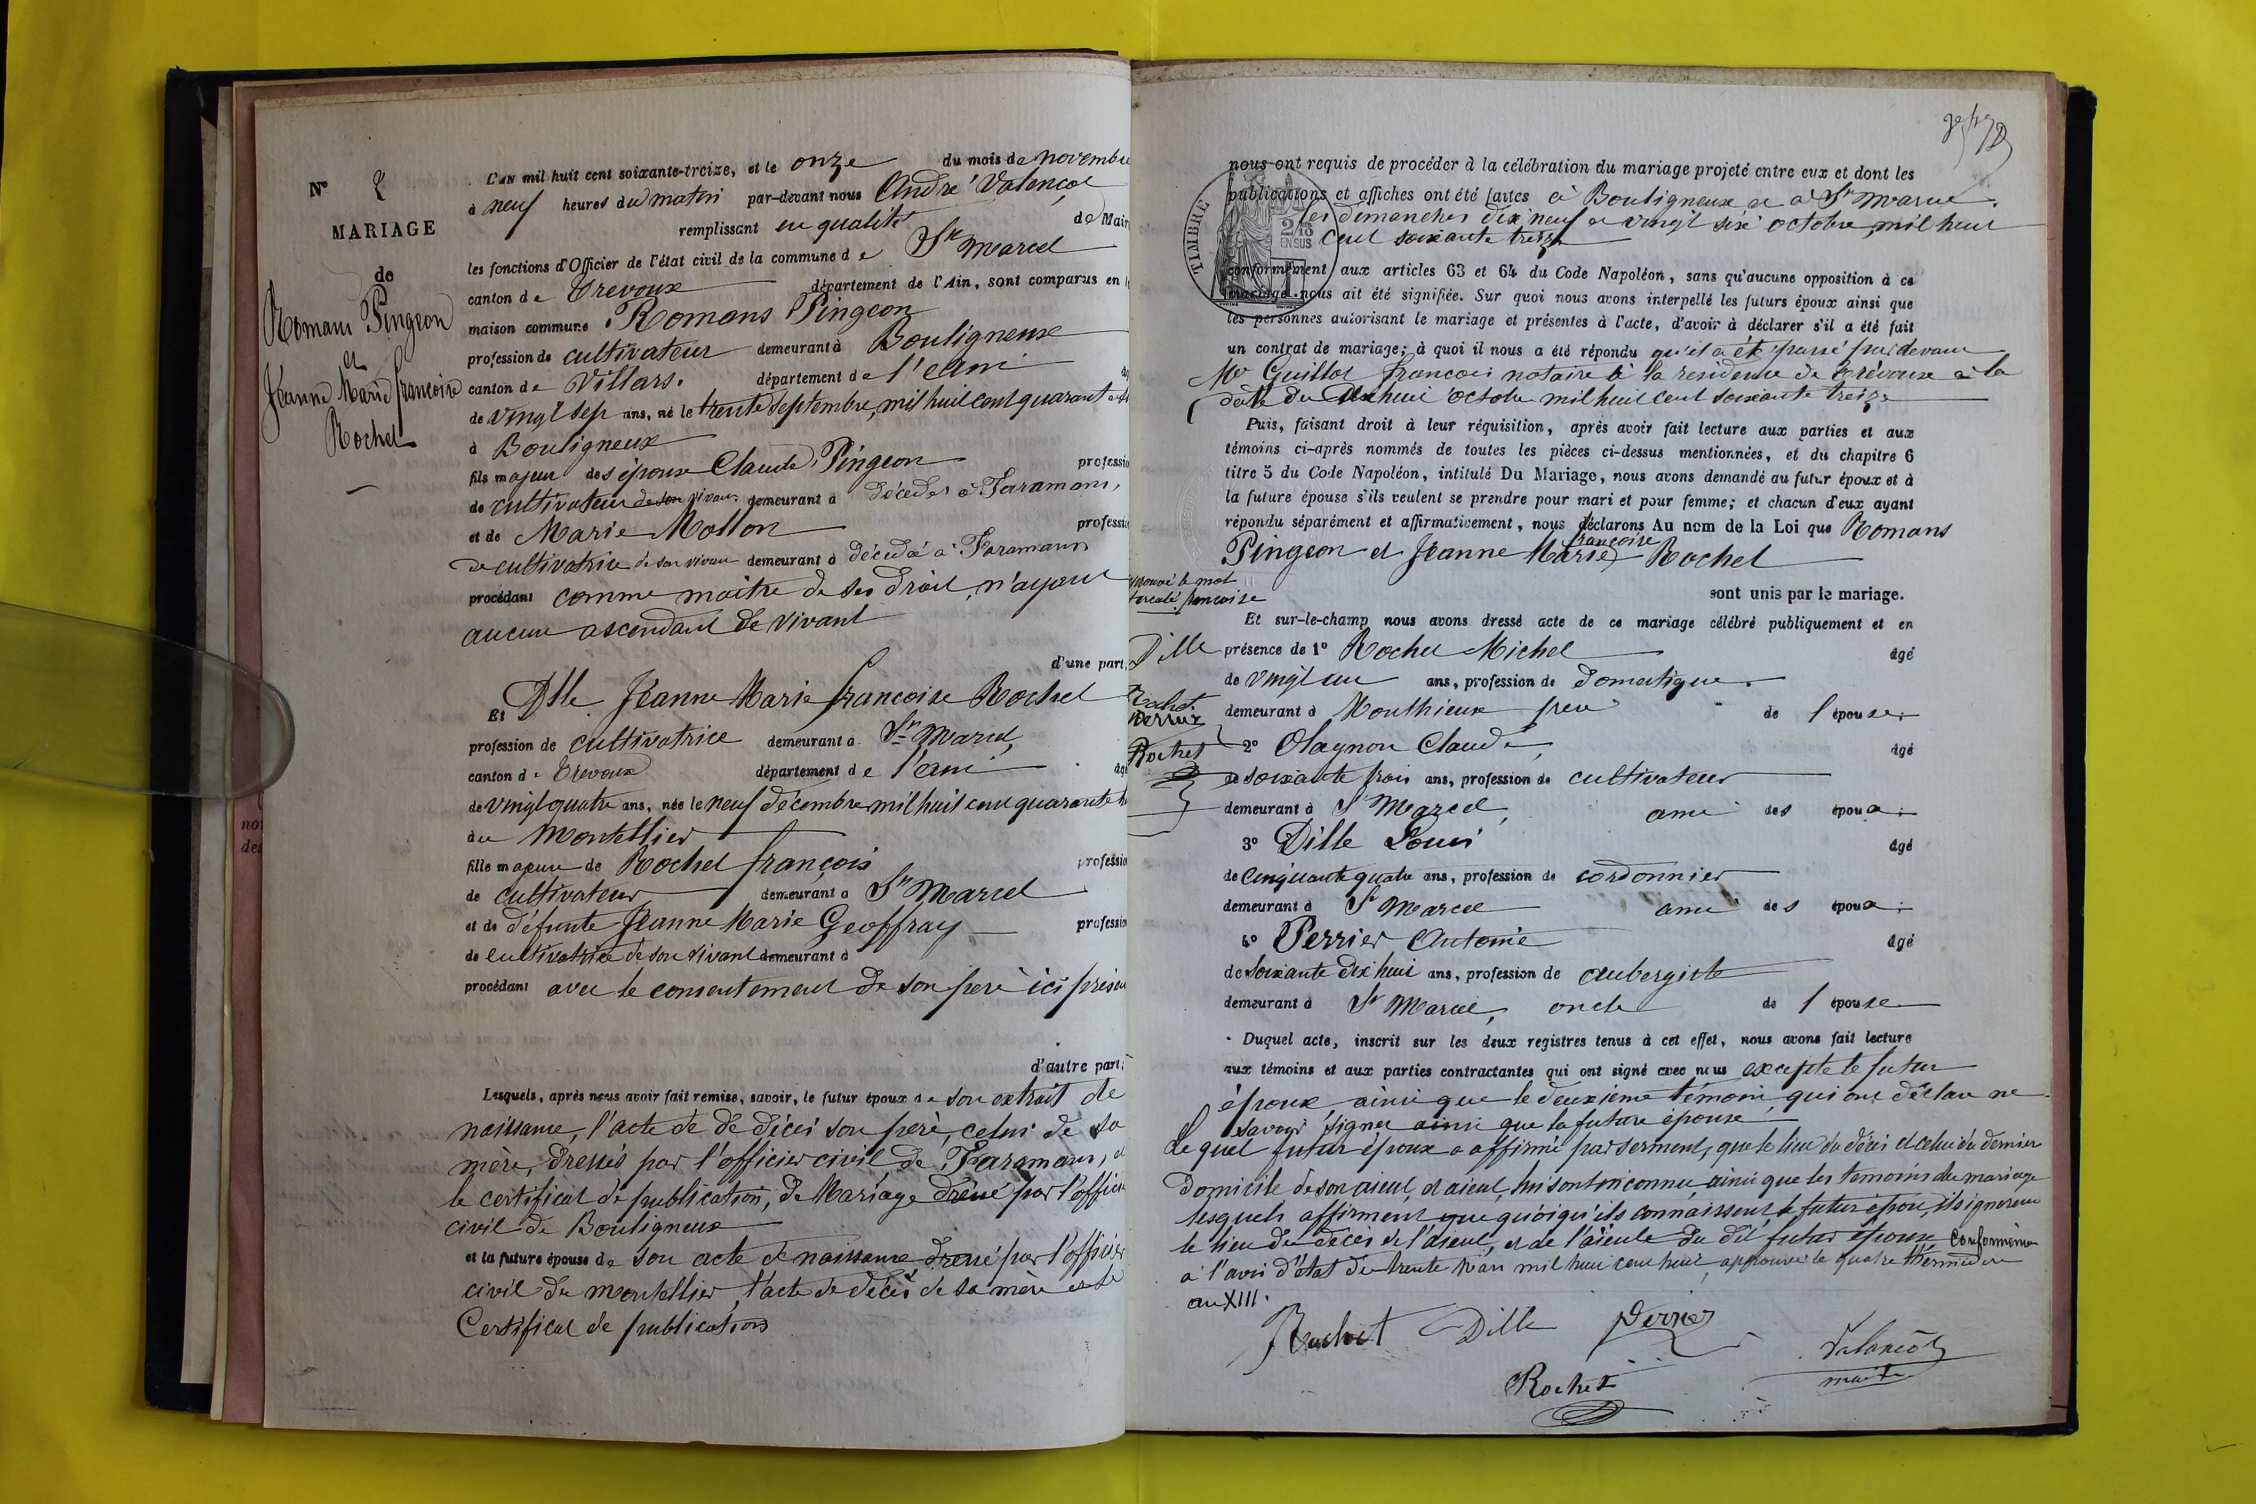 N° 8
MARIAGE
de
Romans Pingeon
et
Jeanne Marie françoise
Rochet
L'AN mil huit cent soixante-treize, et le onze du mois de novembre
à neuf heures du matin par-devant nous André Valençot
remplissant en qualité de Mair
les fonctions d'Officier de l'état civil de la commune de St Marcel
canton de Trevoux département de l'Ain, sont comparus en l
maison commune Romans Pingeon
profession de cultivateur demeurant à Bouligneux
canton de Villars. département de l'ain
de vingt sept ans, né le trente septembre, mil huit cent quarante
à Bouligneux
fils majeur des époux Claude Pingeon professio
de cultivateur de son vivan demeurant à décédés à Faramans,
et de Marie Mollon professio
de cultivatrice de son vivan demeurant à décédée à Faramans
procédant comme maitre de ses droit, n'ayant
aucun ascendant de vivant
d'une part,
Et Dlle Jeanne Marie françoise Rochet
profession de cultivatrice demeurant à St Marcel,
canton de Trevoux département de l'ain âgé
de vingt quatre ans, née le neuf décembre mil huit cent quarante h
au Montellier
fille majeure de Rochet françois professio
de cultivateur demeurant à St Marcel
et de défunte Jeanne Marie Geoffray profession
de cultivatrice de son vivant demeurant à
procédant avec le consentement de son père ici présen
d'autre part;
Lesquels, après nous avoir fait remise, savoir, le futur époux de son extrait de
naissance, l'acte de dé décès son père, celui de sa
mère, dressés par l'officier civil de Faramans, et
le certificat de publication, de Mariage dressé par l'officie
civil de Bouligneux
et la future épouse de son acte de naissance dressé par l'officier
civil du montellier, l'acte de décès de sa mère et le
Certificat de publications
nous ont requis de procéder à la célébration du mariage projeté entre eux et dont les
publications et affiches ont été faites à Bouligneux et à St Marcel.
les dimanches dix neuf et vingt six octobre, mil huit
cent soixante treize
TIMBRE
2/10
EN SUS
conformément aux articles 63 et 64 du Code Napoléon, sans qu'aucune opposition à ce
mariage nous ait été signifiée. Sur quoi nous avons interpellé les futurs époux ainsi que
les personnes autorisant le mariage et présentes à l'acte, d'avoir à déclarer s'il a été fait
un contrat de mariage; à quoi il nous a été répondu qu'il a été passé par devant
Me Guillot françois notaire à la residence de Trévoux à la
date du dix huit octobre mil huit cent soixante treize
Puis, faisant droit à leur réquisition, après avoir fait lecture aux parties et aux
témoins ci-après nommés de toutes les pièces ci-dessus mentionnées, et du chapitre 6
titre 5 du Code Napoléon, intitulé Du Mariage, nous avons demandé au futur époux et à
la future épouse s'ils veulent se prendre pour mari et pour femme; et chacun d'eux ayant
répondu séparément et affirmativement, nous déclarons Au nom de la Loi que Romans
françoise
Pingeon et Jeanne Marie Rochet
le mot
françoise
sont unis par le mariage.
Et sur-le-champ nous avons dressé acte de ce mariage célébré publiquement et en
Dille
présence de 1° Rochet Michel âgé
de vingt un ans, profession de domestique.
Rochet
Perrier
demeurant à Monthieux frère de l'épouse.
Rochet
2° Olagnon Claude, âgé
de soixante trois ans, profession de cultivateur
demeurant à St Marcel, ami des époux.
3° Dille Louis âgé
de cinquante quatre ans, profession de cordonnier
demeurant à St Marcel ami des époux.
4° Perrier Antoine âgé
de soixante dix huit ans, profession de aubergiste
demeurant à St Marcel, oncle de l'épouse
Duquel acte, inscrit sur les deux registres tenus à cet effet, nous avons fait lecture
aux témoins et aux parties contractantes qui ont signé avec nous excepté le futur
époux ainsi que le deuxième témoin, qui ont déclaré ne
savoir signer ainsi que la future épouse
Le quel futur époux a affirmé par serment, que le lieu du décès et celui du dernier
domicile de son aieul, et aieul, lui sont inconnu, ainsi que les temoins du mariage
lesquels affirment que quoiqu'ils connaissent le futur époux, ils ignorent
le lieu du décès de l'aieul, et de l'aïeule du dit futur époux conformément
à l'avis d'état du trente mars mil huit cent huit, approuvé le quatre thermidor
an XIII.
Rochet Dille Perrier
Valançot
maire
Rochet